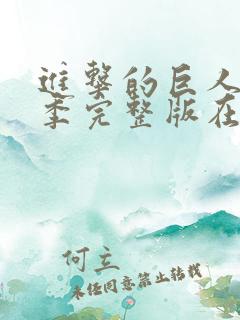 進擊的巨人
季完整版在
何立
未经同意禁止转载